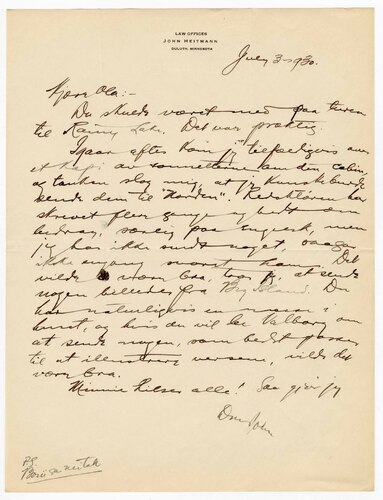 LAW OFFICES
JOHN HEITMANN
DULUTH, MINNESOTA
July 3-1930.
Kjære Ola:-
Du skulde været med paa turen
til Rainy Lake. Det var prægtig.
Igaar aften kom jeg
et av sonnetterne om den cabin,
og tanken slog mig at jeg kunde
sende dem til "Norden". Redaktøren har
skrevet flere gange og bedt om
bidrag, særlig paa engersk, men
jeg har ikke sendt noget,
ikke engang svaret ham. Det
vilde være bra, tror jeg, at sende
nogen billeder fra Big Island. Du
har naturligvis en masse
, og hvis du vil be Valborg om
at sende nogen, som bedst passer
til at illustrere versene, vilde det
være bra.
Minnie hilser alle! Saa gjør jeg
Din John